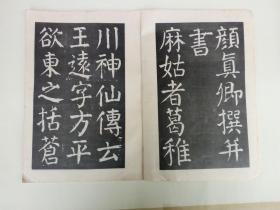 顏真卿撰并
書
麻姑者葛稚
川神仙傳云
王遠字方平
欲東之括蒼